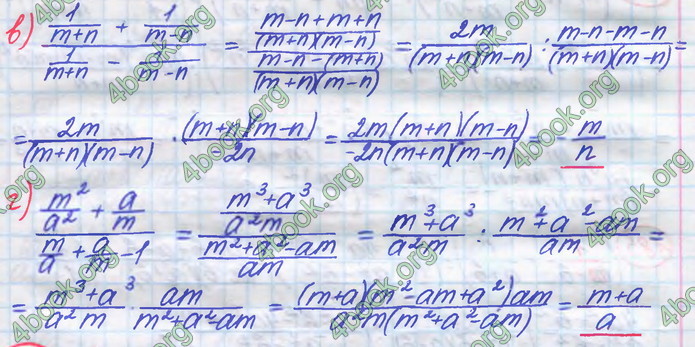 в) (1/(m+n) + 1/(m-n))/(1/(m+n) - 1/(m-n)) = ((m-n+m+n)/((m+n)(m-n)))/((m-n-(m+n))/((m+n)(m-n))) = 2m/((m+n)(m-n)) : (m-n-m-n)/((m+n)(m-n)) =
= 2m/((m+n)(m-n)) · ((m+n)(m-n))/(-2n) = (2m(m+n)(m-n))/(-2n(m+n)(m-n)) = -m/n
г) (m²/a² + a/m)/(m/a + a/m - 1) = ((m³+a³)/(a²m))/((m²+a²-am)/(am)) = (m³+a³)/(a²m) : (m²+a²-am)/(am) =
= (m³+a³)/(a²m) · am/(m²+a²-am) = ((m+a)(m²-am+a²)am)/(a²m(m²+a²-am)) = (m+a)/a
4book.org